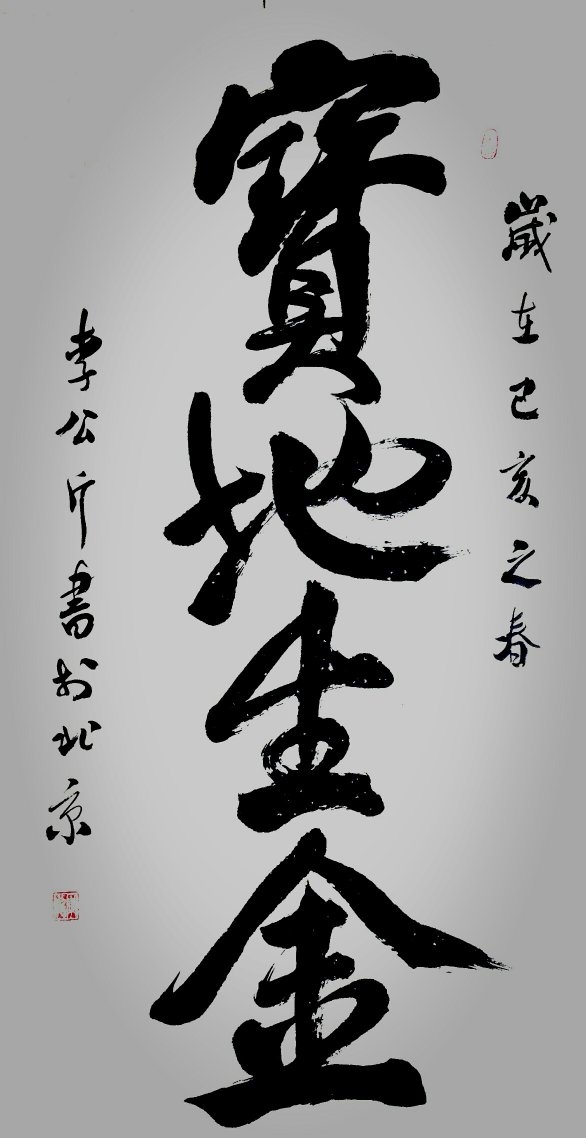 歲在己亥之春
寶地生金
李公斤書於北京